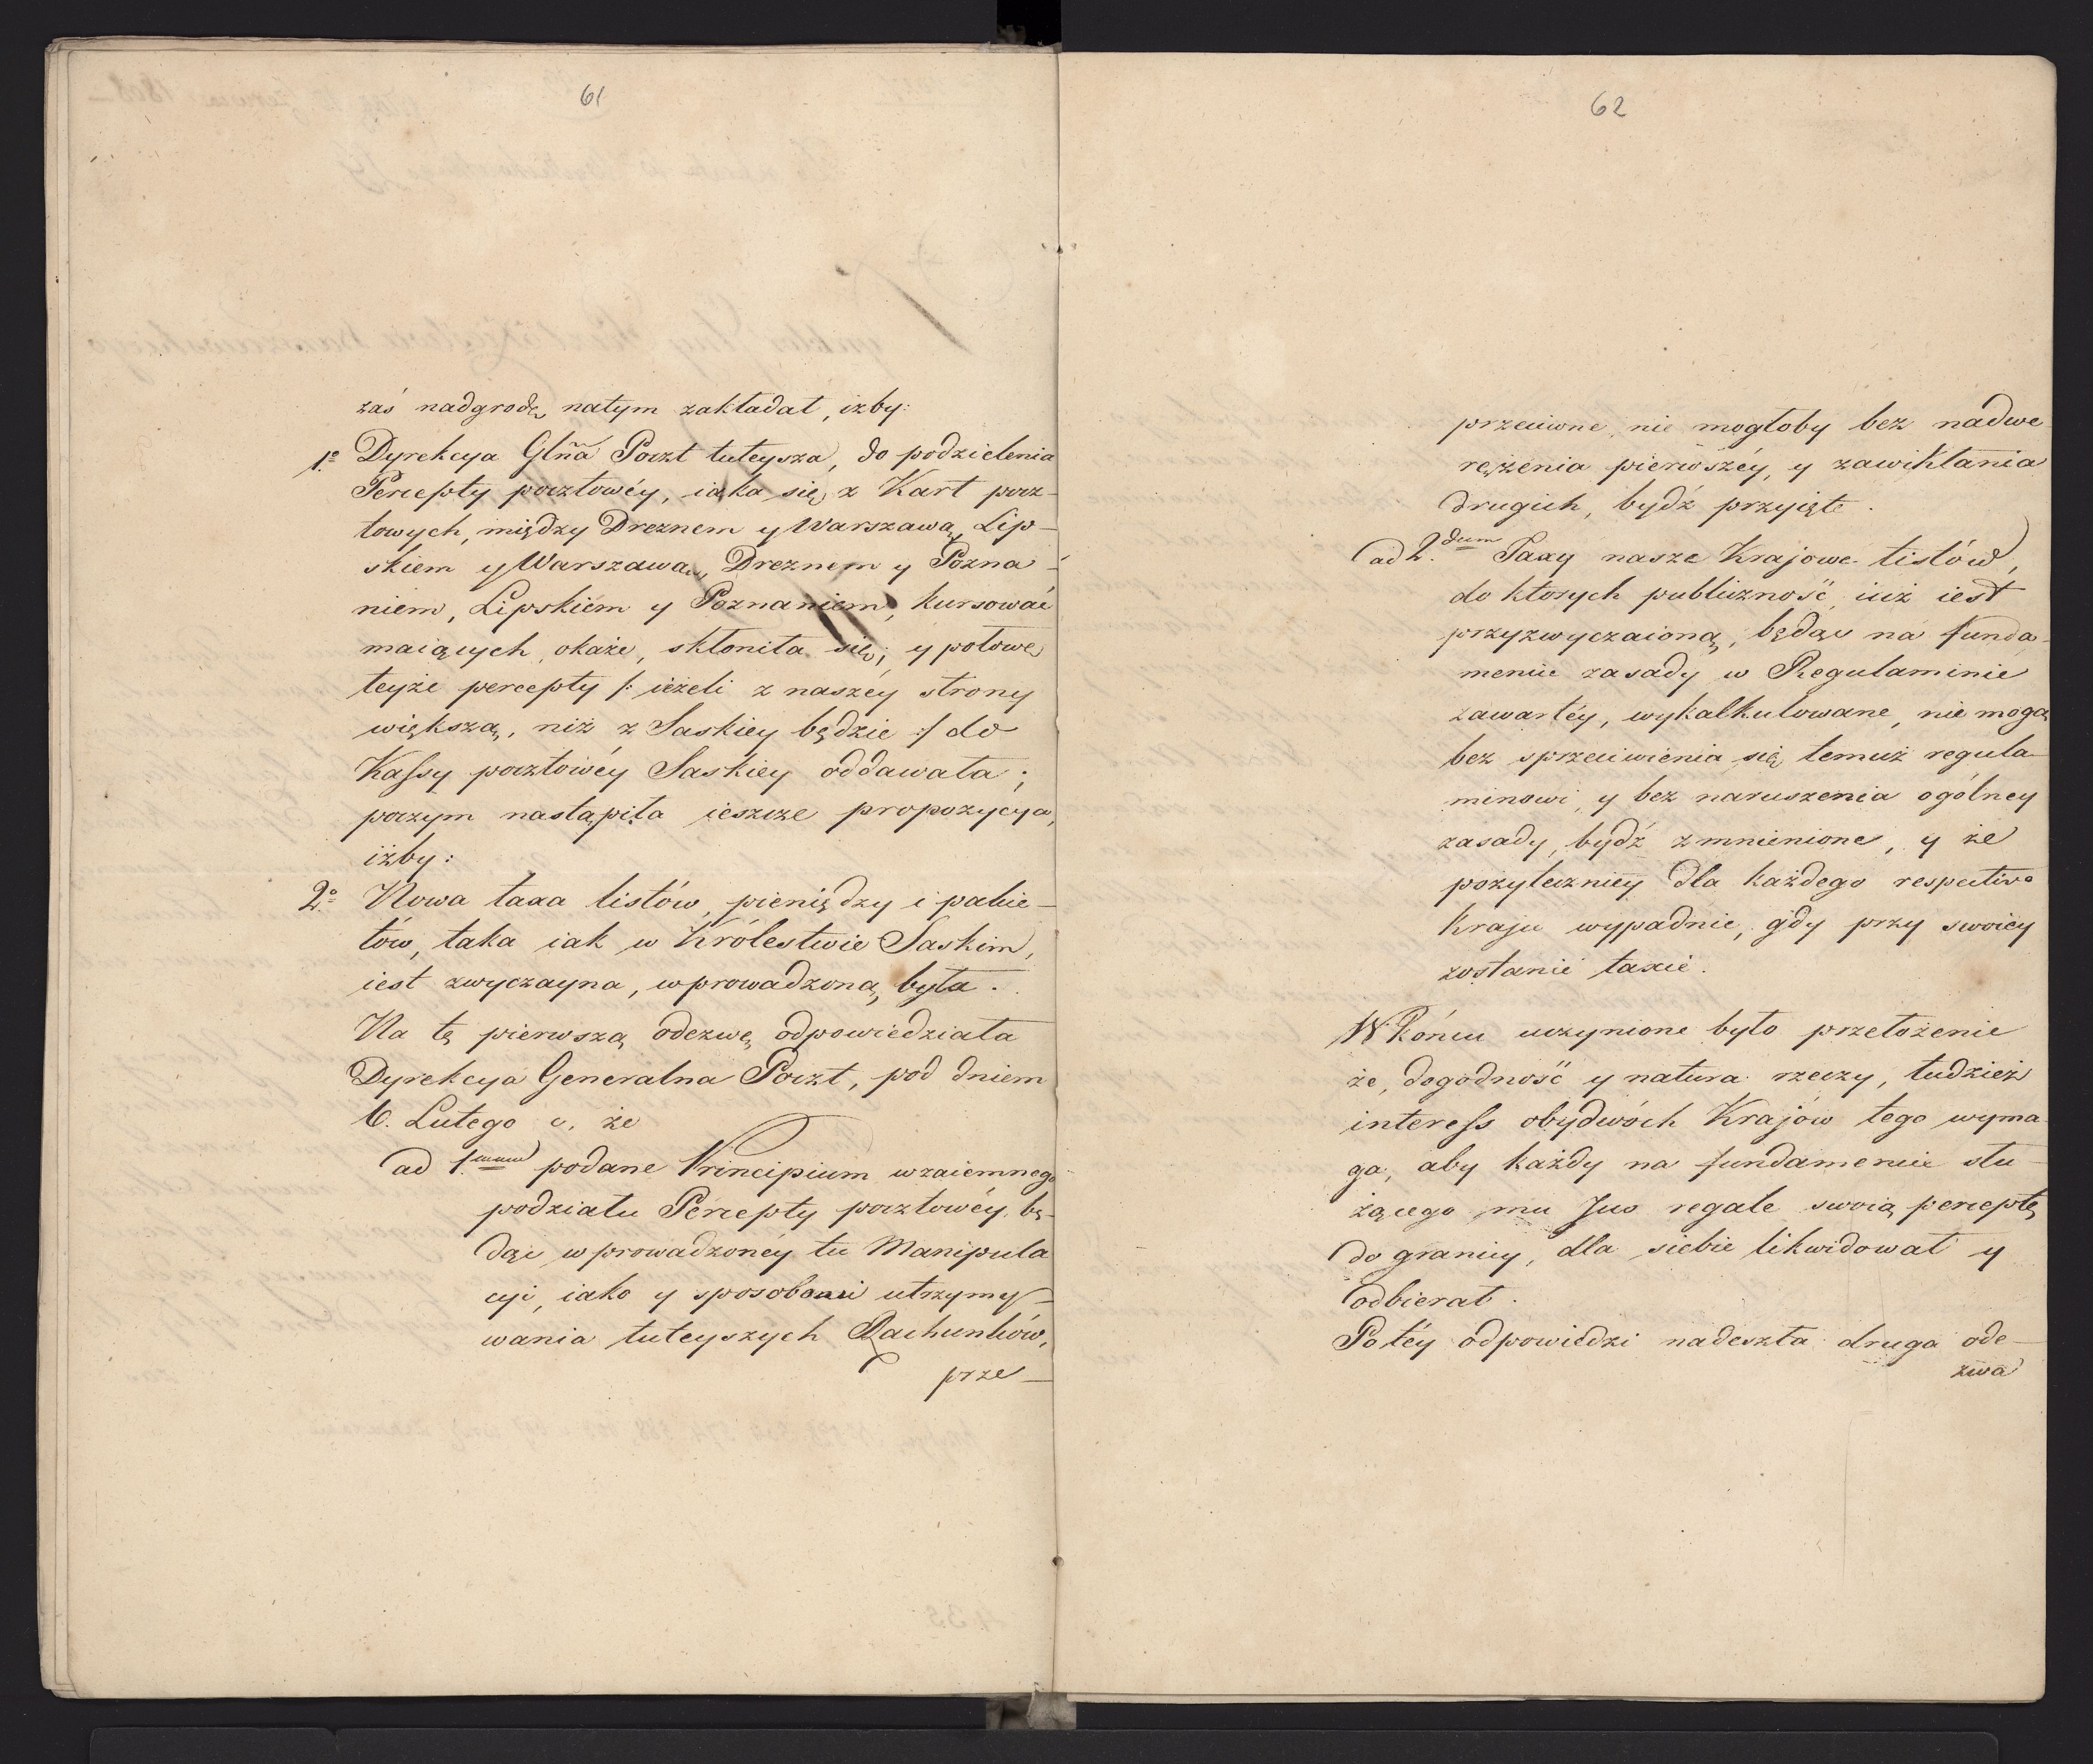 61
zaś nadgrodę natym zakładał, iżby:
1º Dyrekcya Glña Poczt tuteysza, do podzielenia
Percepty pocztowéy, iaka się z Kart pocz-
towych, między Dreznem y Warszawą, Lip-
skiem y Warszawą, Dreznem y Pozna-
niem, Lipskiem y Poznaniem, kursować
maiących, okaże, skłoniła się; y połowę
teyże percepty /: ieżeli z naszéy strony
większą, niż z Saskiey będzie :/ do
Kassy pocztowéy Saskiey oddawała;
poczym nastąpiła ieszcze propozycya,
iżby:
2º Nowa taxa listów, pieniędzy i pakie-
tów, taka iak w Królestwie Saskim,
iest zwyczayna, wprowadzoną była.
Na tę pierwszą odezwę odpowiedziała
Dyrekcya Generalna Poczt, pod dniem
6. Lutego c. że
ad 1.mum podane Principium wzaiemnego
podziału Percepty pocztowéy, bę-
dąc wprowadzonéy tu Manipula
cyi, iako y sposobowi utrzymy-
wania tuteyszych Rachunków,
prze-
62
przeciwne, nie mogłoby bez nadwe
rężenia pierwszéy, y zawikłania
drugich, bydź przyięte.
ad 2.dum Taxy nasze Krajowe listów,
do których publiczność iuż iest
przyzwyczaioną, będąc na funda-
mencie zasady w Regulaminie
zawartéy, wykalkulowane, nie mogą
bez sprzeciwienia się temuż regula-
minowi, y bez naruszenia ogólney
zasady, bydź zmnienione, y że
pożyteczniey dla każdego respective
Kraju wypadnie, gdy przy swoiey
zostanie taxie.
W Końcu uczynione było przełożenie
że, dogodność y natura rzeczy, tudzież
interess obydwóch Krajów tego wyma-
ga, aby każdy na fundamencie słu-
żącego mu Jus regale swoią perceptę
do granicy, dla siebie likwidował y
odbierał.
Po téy odpowiedzi nadeszła druga ode-
zwa